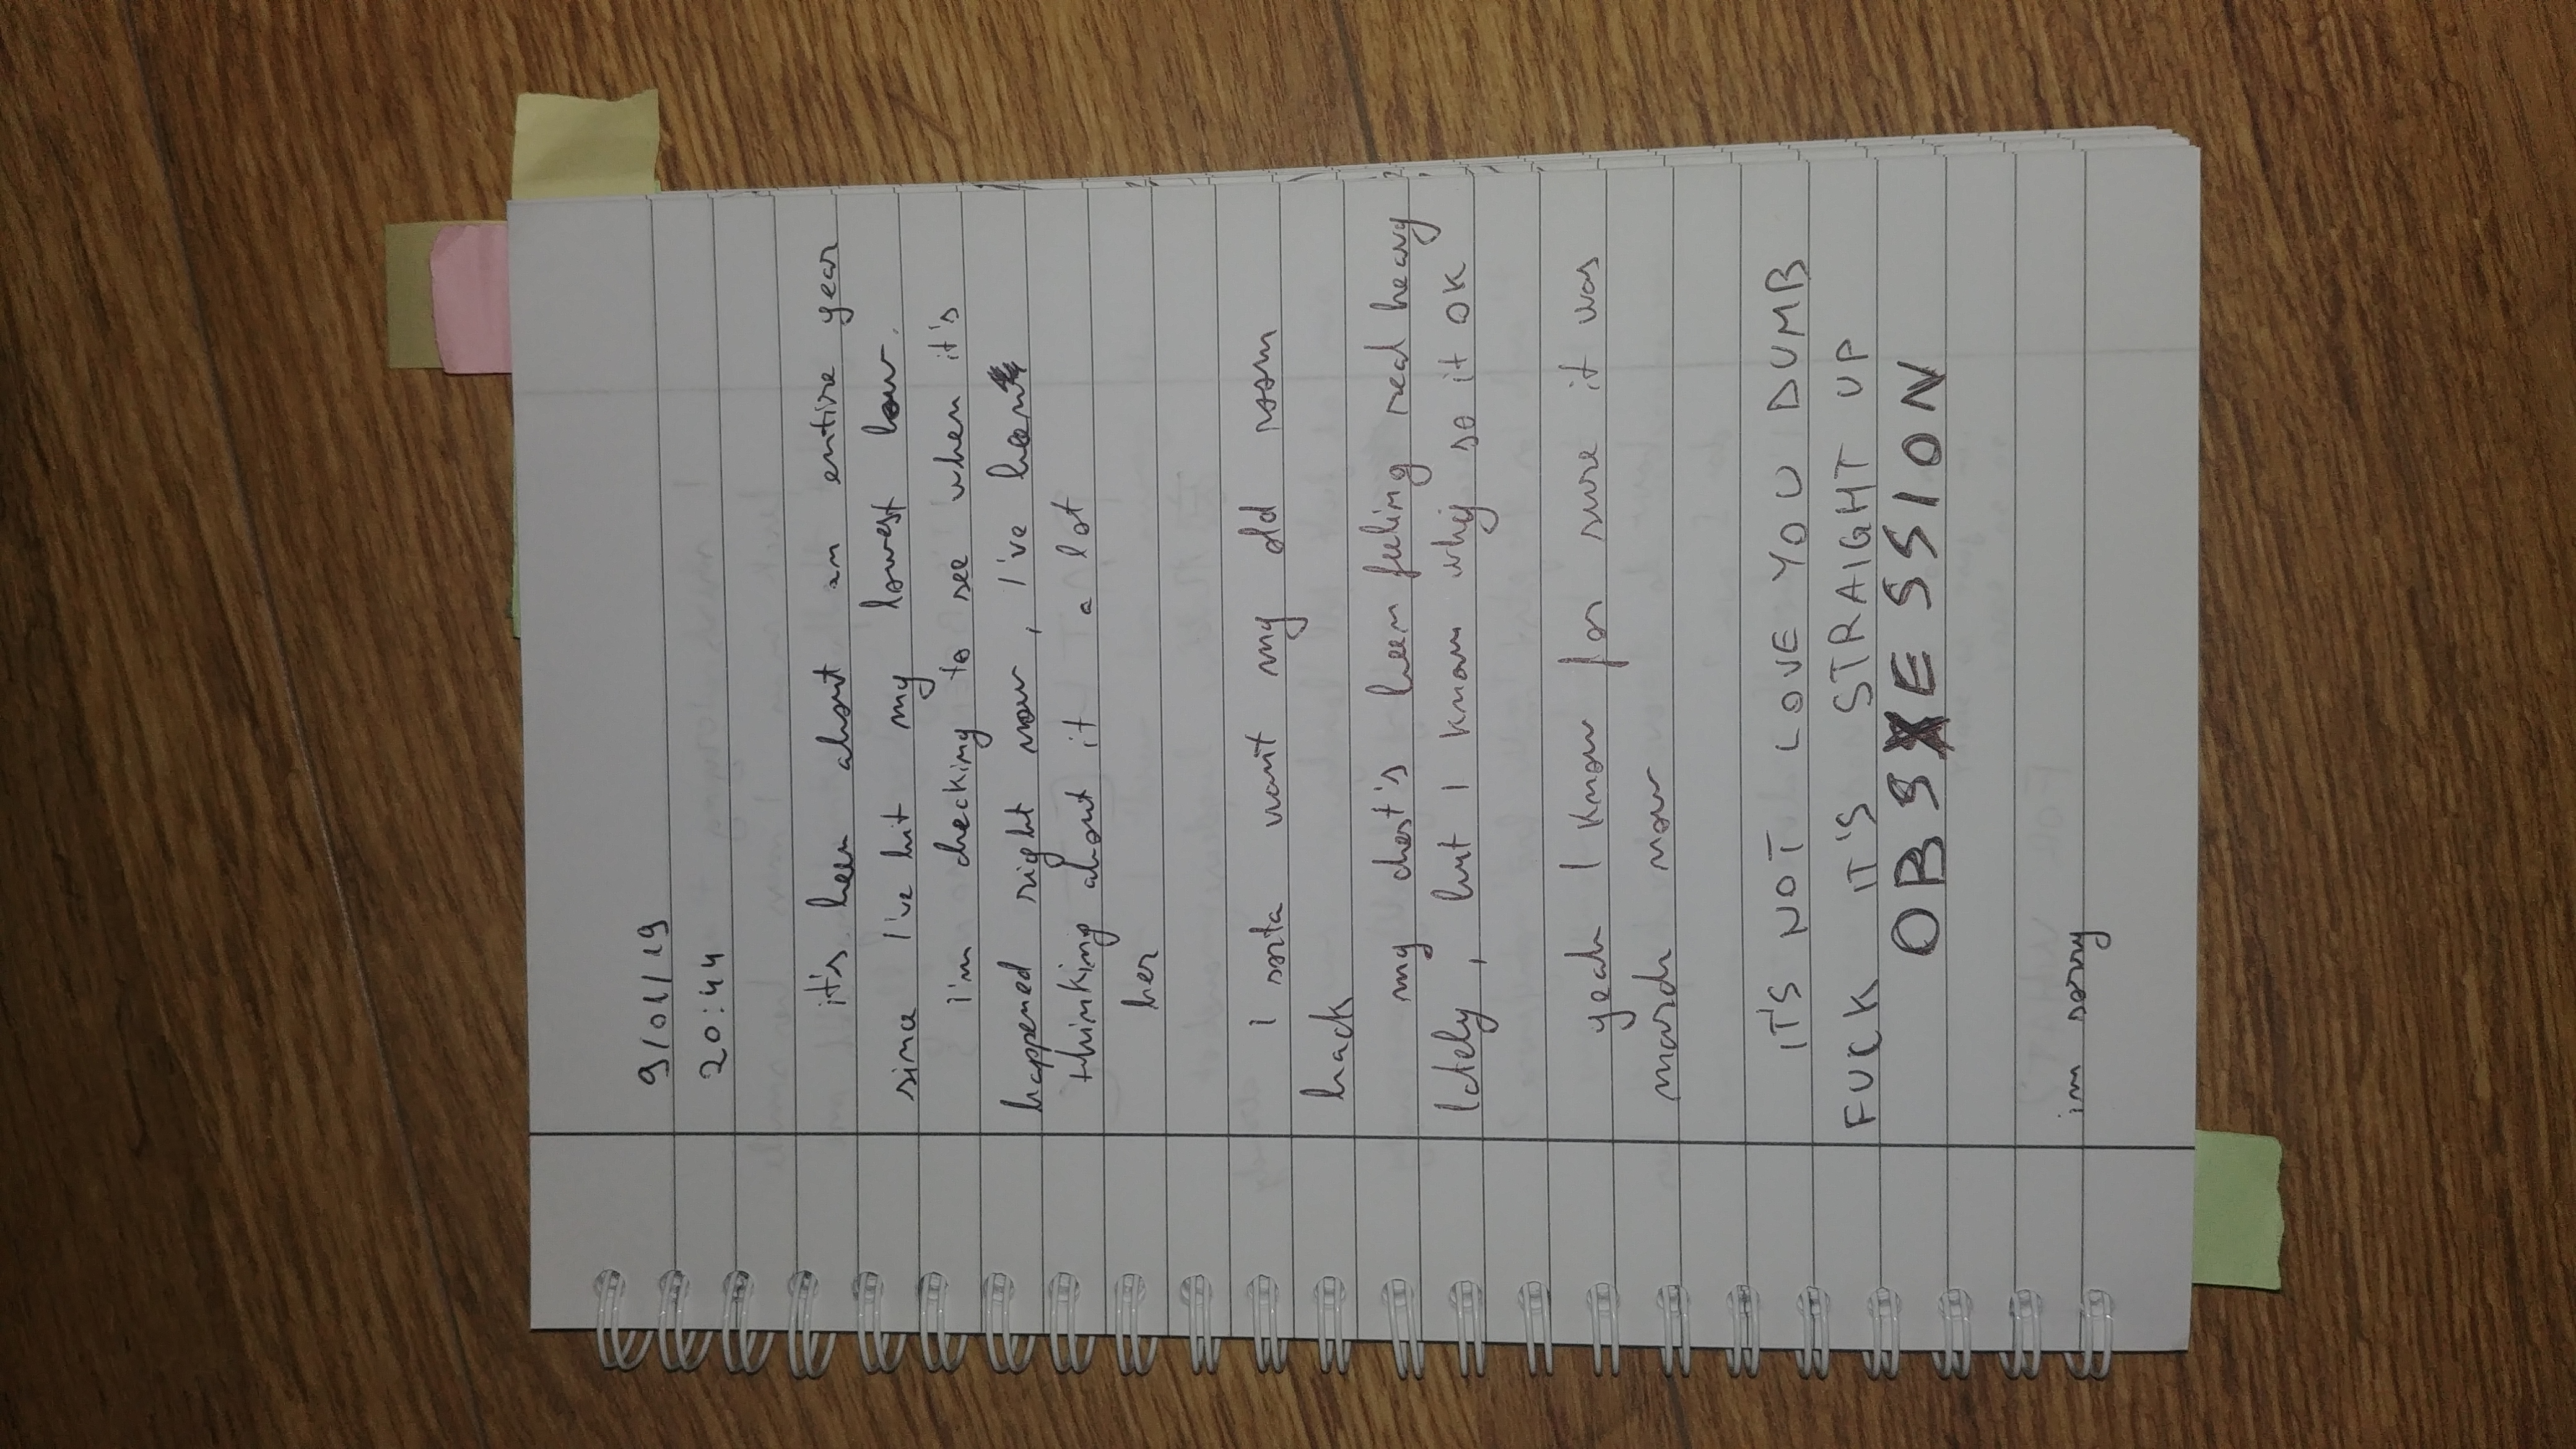 9/01/19
20:44
it's been about an entire year
since I've hit my lowest low.
I'm checking to see when it's
happened right now, I've been
thinking about it a lot
her
I sorta want my old room
back
my chest's been feeling real heavy
lately, but I know why so it OK
yeah I know for sure it was
march now
IT'S NOT LOVE YOU DUMB
FUCK IT'S STRAIGHT UP
OBSESSION
im sorry